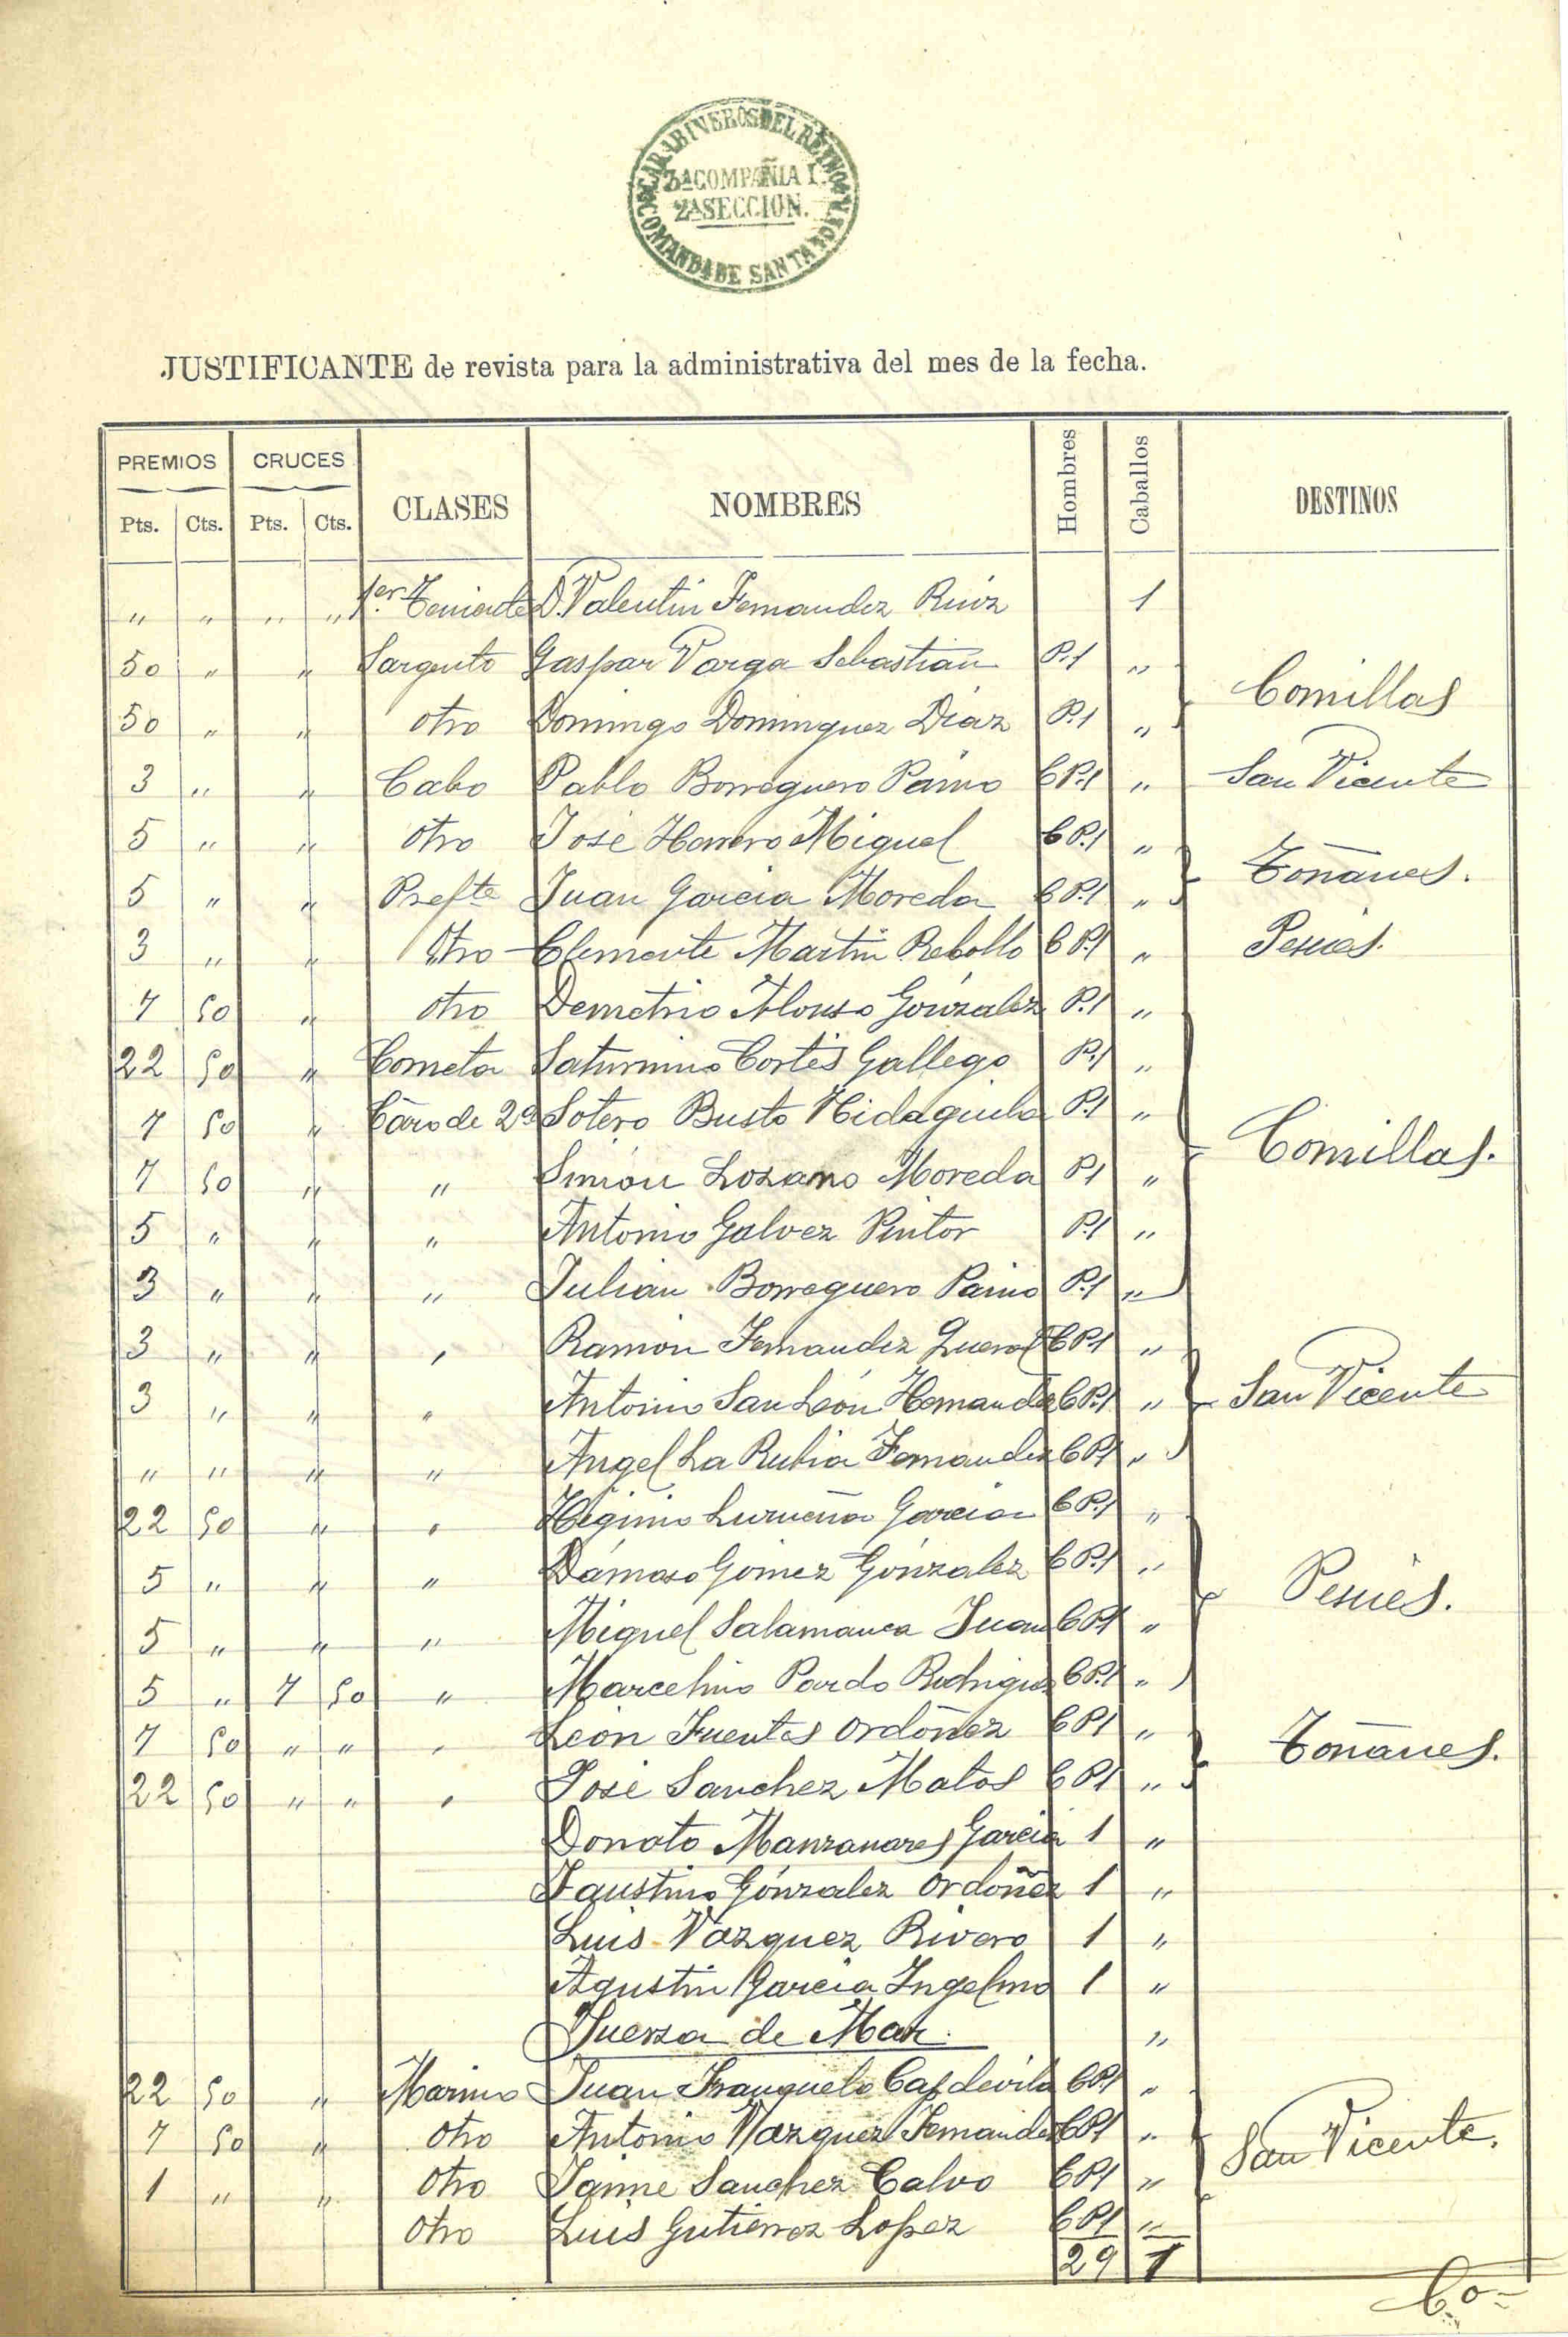 CARABINEROS DEL REINO
3ª COMPAÑIA
2ª SECCION.
COMANDA DE SANTANDER
JUSTIFICANTE de revista para la administrativa del mes de la fecha.
PREMIOS CRUCES CLASES NOMBRES Hombres Caballos DESTINOS
Pts. Cts. Pts. Cts.
" " " " 1er Teniente D. Valentin Fernandez Ruiz 1
50 " " Sargento Gaspar Varga Sebastian P.1 "
Comillas
50 " " otro Domingo Dominguez Diaz P.1 "
3 " " Cabo Pablo Borreguero Paino C P.1 " San Vicente
5 " " otro José Herrero Miguel C P.1 "
Toñanes.
5 " " Prefte Juan Garcia Moreda C P.1 "
3 " " Otro Clemente Martin Rebollo C P.1 " Pesués.
7 50 " otro Demetrio Alonso Gonzalez P.1 "
22 50 " Corneta Saturnino Cortés Gallego P.1 "
7 50 " Caro de 2ª Sotero Busto P.1 "
Comillas.
7 50 " " Simón Lozano Moreda P1 "
5 " " " Antonio Galvez Pintor P.1 "
3 " " " Julian Borreguero Paino P.1 "
3 " " " Ramón Fernandez C P.1 "
3 " " " Antonio San León Hernandez C P.1 " San Vicente
" " " " Angel La Rubia Fernandez C P1 "
22 50 " " Higinio Lurueña Garcia C P.1 "
5 " " " Dámaso Gómez Gónzalez C P.1 "
Pesués.
5 " " " Miguel Salamanca Juan C P1 "
5 " 7 50 " Marcelino Pardo Rodriguez C P.1 "
7 50 " " " León Fuentes Ordoñez C P1 "
Toñanes.
22 50 " " " José Sanchez Matos C P1 "
Donato Manzanares Garcia 1 "
Faustino Gónzalez Ordoñez 1 "
Luis Vazquez Rivero 1 "
Agustin Garcia Ingelmo 1 "
Fuerza de Mar. "
22 50 " Marino Juan Franquelo Capdevila C P1 "
7 50 " otro Antonio Vazquez Fernandez C P1 "
San Vicente.
1 " " otro Jaime Sanchez Calvo C P1 "
otro Luis Gutierrez Lopez C P1 "
29 1